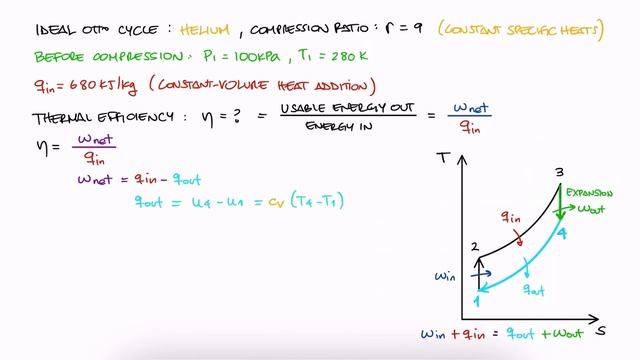 IDEAL OTTO CYCLE : HELIUM , COMPRESSION RATIO : r = 9 (CONSTANT SPECIFIC HEATS)
BEFORE COMPRESSION : P₁ = 100 kPa , T₁ = 280 K
qin = 680 kJ/kg (CONSTANT-VOLUME HEAT ADDITION)
THERMAL EFFICIENCY : η = ? = USABLE ENERGY OUT / ENERGY IN = wnet / qin
η = wnet / qin
wnet = qin - qout
qout = u₄ - u₁ = cv (T₄ - T₁)
T
3
EXPANSION
wout
qin
4
2
win
qout
1
S
win + qin = qout + wout